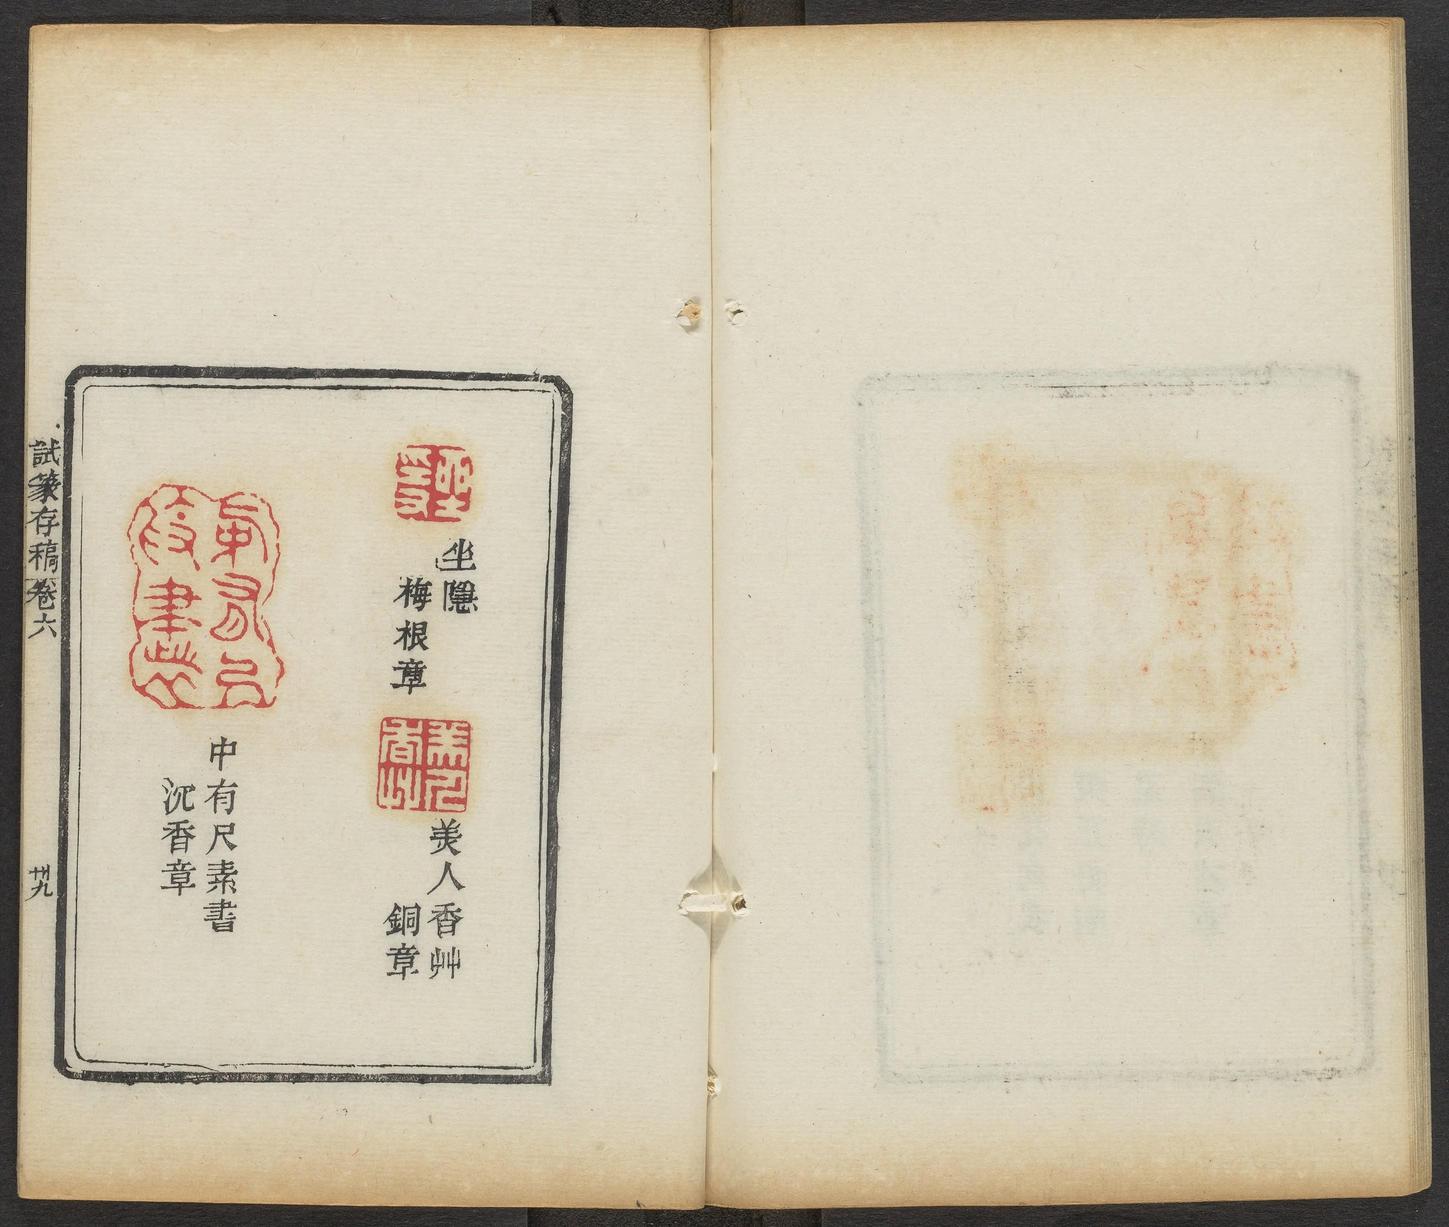 坐隱
梅根章
美人香艸
銅章
中有尺素書
沉香章
試篆存稿
卷六
卅九